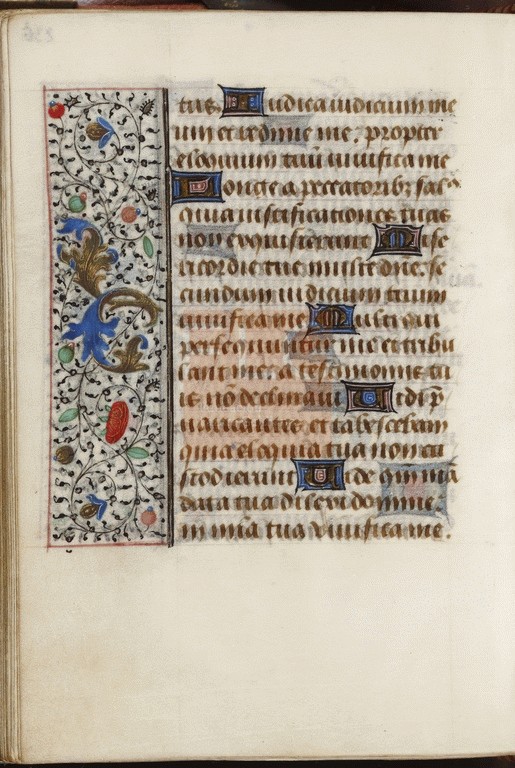 tus. Iudica iudicium me
um et redime me. propter
eloquium tuū viuifica me
Longe a peccatorib; sal᷒
quia iustificationes tuas
non exquisierunt Mise
ricordie tue multe dñe. se
cundum iudicium tuum
viuifica me Multi qui
persequuntur me et tribu
lant me: a testimoniis tu
is nō declinaui Vidi p̄
uaricantes et tabescebam
quia eloquia tua non cu
stodierunt Vide qm̄ mā
data tua dilexi domine
in mīa tua viuifica me.